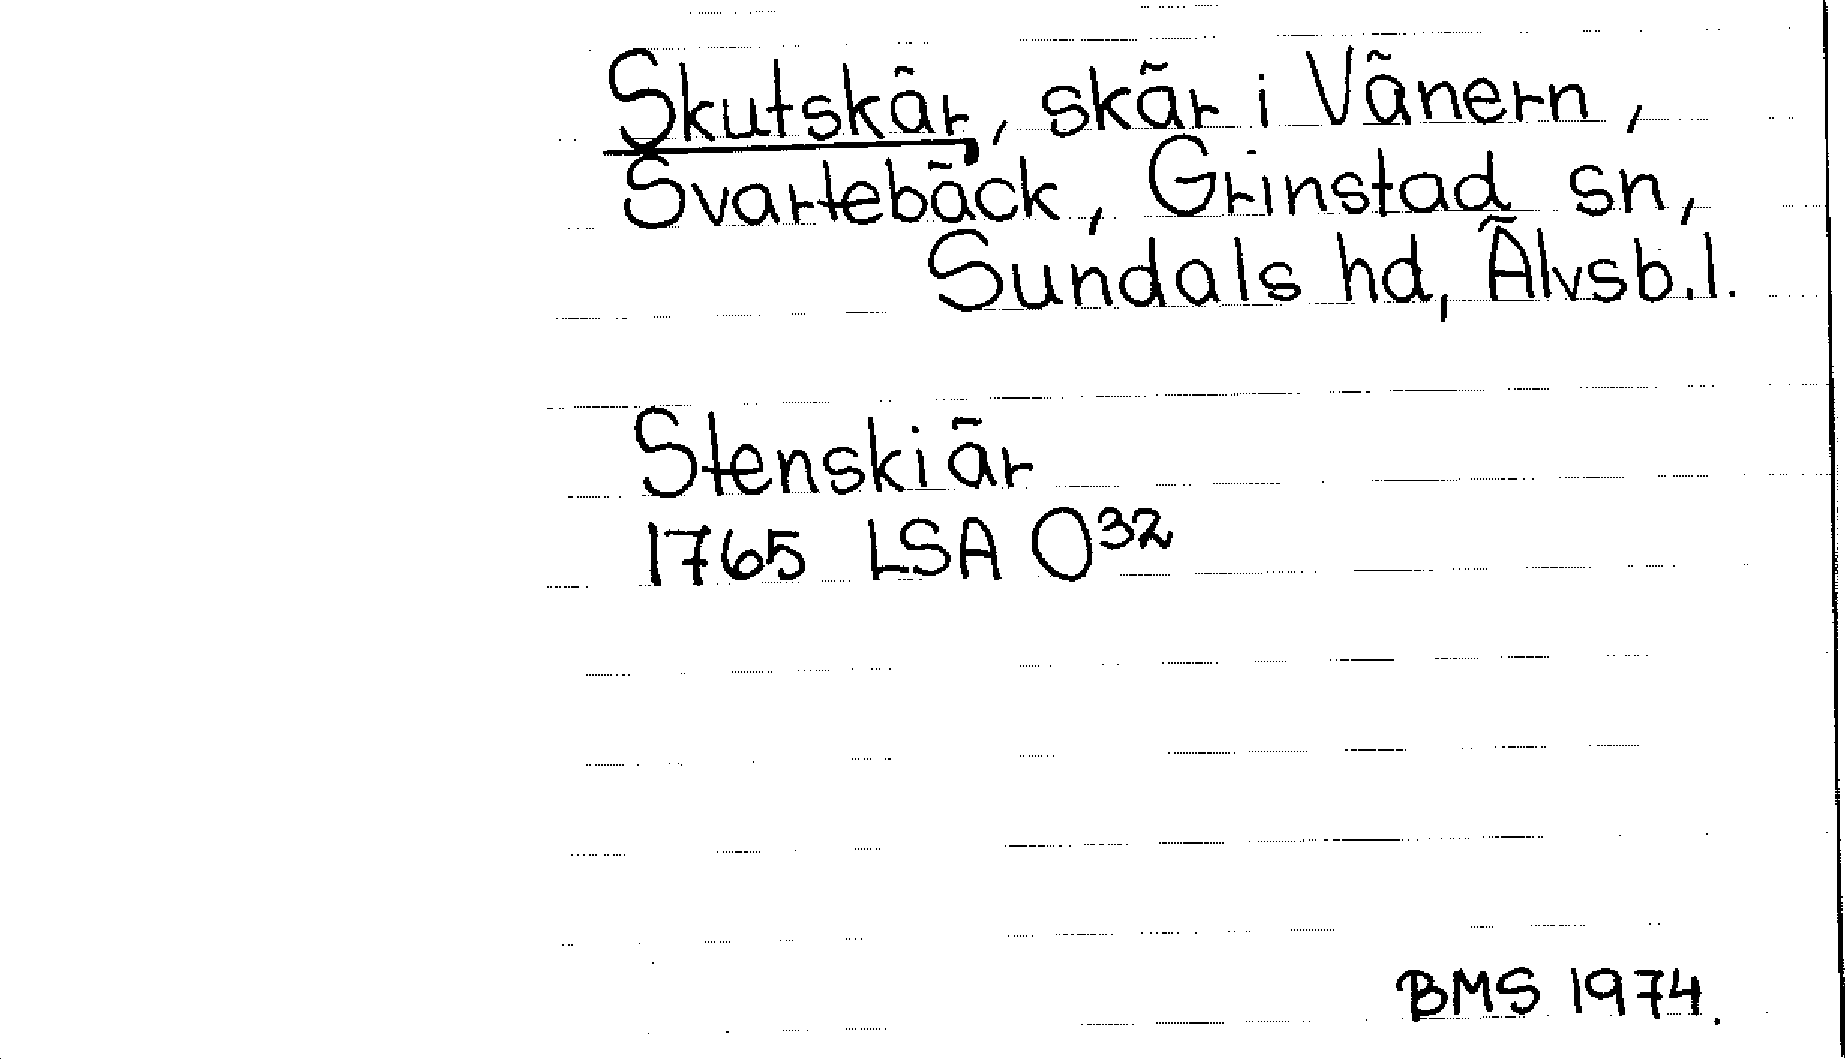 Skutskär, skär i Vänern,
Svartebäck, Grinstad sn,
Sundals hd, Älvsb.l.
Stenskiär
1765 LSA O32
BMS 1974.